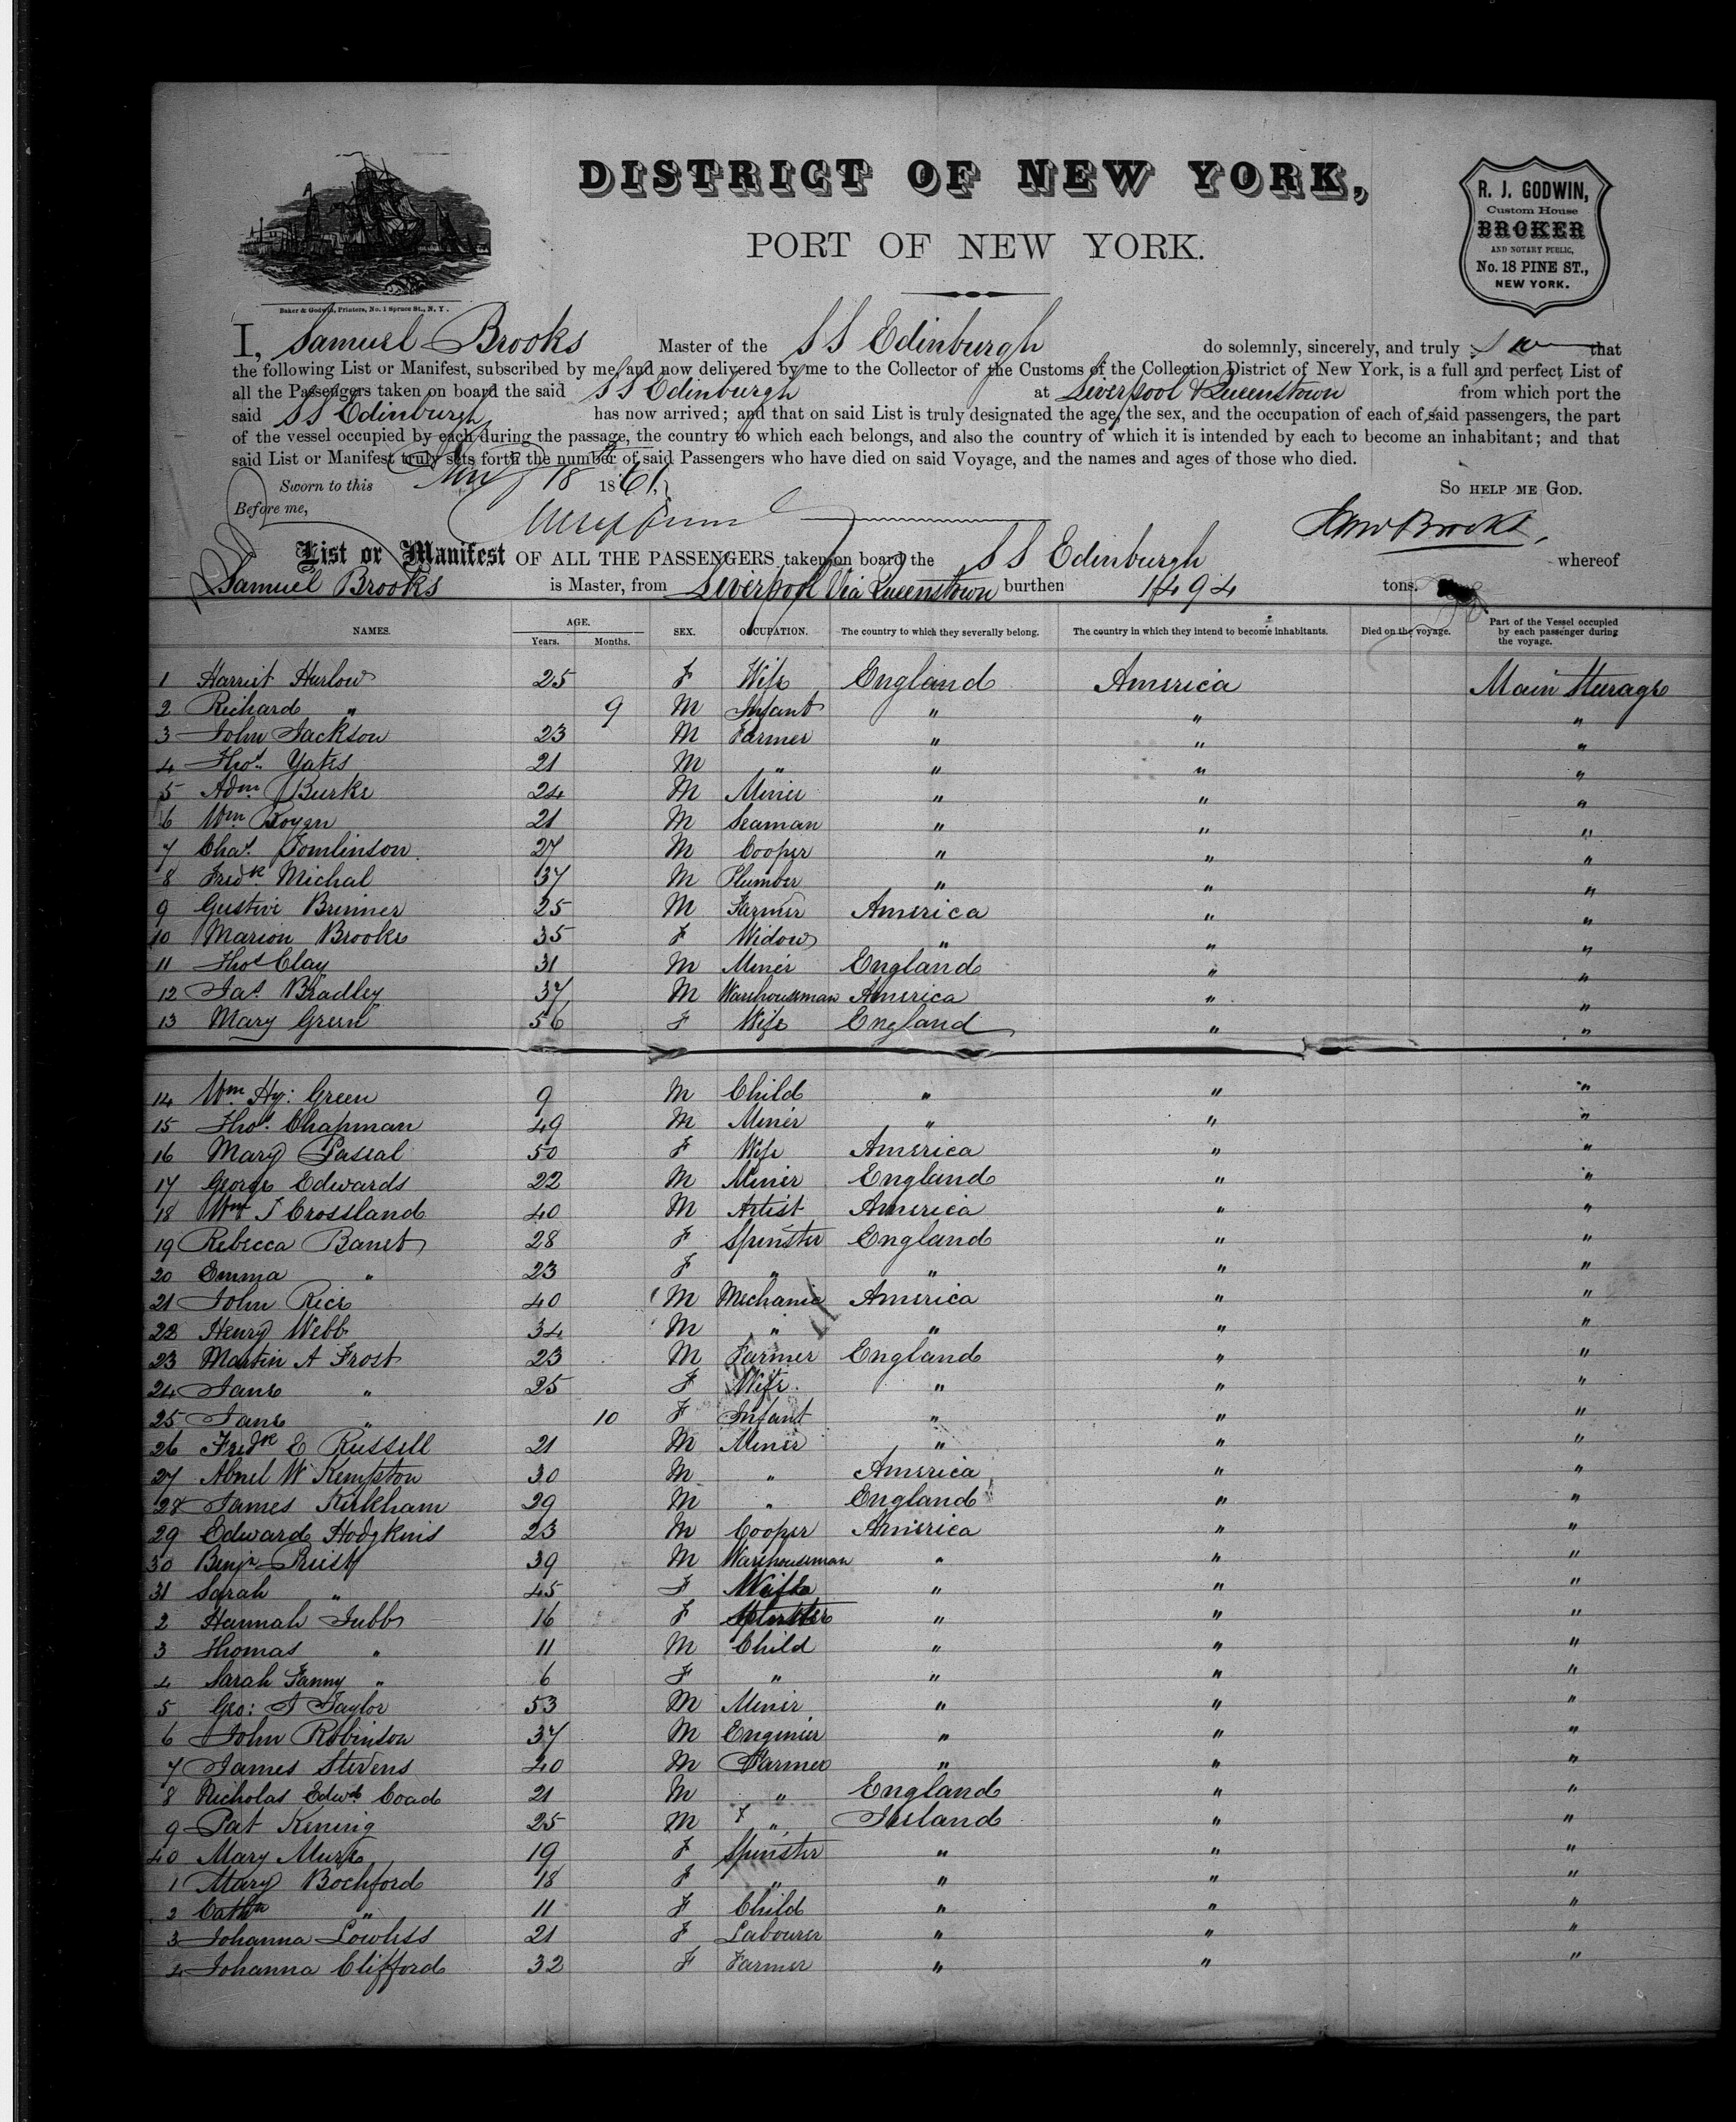 DISTRICT OF NEW YORK,
PORT OF NEW YORK.
R. J. GODWIN,
Custom House
BROKER
AND NOTARY PUBLIC,
No. 18 PINE ST.,
NEW YORK.
Baker & Godwin, Printers, No. 1 Spruce St., N. Y.
I, Samuel Brooks Master of the S S Edinburgh do solemnly, sincerely, and truly that
the following List or Manifest, subscribed by me, and now delivered by me to the Collector of the Customs of the Collection District of New York, is a full and perfect List of
all the Passengers taken on board the said S S Edinburgh at Liverpool & Queenstown from which port the
said S S Edinburgh has now arrived; and that on said List is truly designated the age, the sex, and the occupation of each of said passengers, the part
of the vessel occupied by each during the passage, the country to which each belongs, and also the country of which it is intended by each to become an inhabitant; and that
said List or Manifest truly sets forth the number of said Passengers who have died on said Voyage, and the names and ages of those who died.
Sworn to this 18 1861, SO HELP ME GOD.
Before me,
Brooks
List or Manifest OF ALL THE PASSENGERS taken on board the S S Edinburgh whereof
Samuel Brooks is Master, from Liverpool Via Queenstown burthen 1494 tons.
NAMES. AGE. Years. Months. SEX. OCCUPATION. The country to which they severally belong. The country in which they intend to become inhabitants. Died on the voyage. Part of the Vessel occupied by each passenger during the voyage.
1 Harriet Hurlow 25 F Wife England America Main Steerage
2 Richard " 9 M Infant " " "
3 John Jackson 23 M Farmer " " "
4 Thos. Yates 21 M " " " "
5 Adm Burke 24 M Miner " " "
6 Wm 21 M Seaman " " "
7 Chas. Tomlinson 27 M Cooper " " "
8 Fredk. Michal 37 M Plumber " " "
9 Gustive Brinner 25 M Farmer America " "
10 Marion Brooks 35 F Widow " " "
11 Thos Clay 31 M Miner England " "
12 Jas. Bradley 37 M Warehouseman America " "
13 Mary Green 56 F Wife England " "
14 Wm. Hy: Green 9 M Child " " "
15 Thos. Chapman 49 M Miner " " "
16 Mary Pascal 50 F Wife America " "
17 George Edwards 22 M Miner England " "
18 Wm T Crossland 40 M Artist America " "
19 Rebecca Banet 28 F Spinster England " "
20 Emma " 23 F " " " "
21 John Rice 40 M Mechanic America " "
22 Henry Webb 34 M " " " "
23 Martin A Frost 23 M Farmer England " "
24 Jane " 25 F Wife. " " "
25 Jane " 10 F Infant " " "
26 Fredk E Russell 21 M Miner " " "
27 Abnel W Kempton 30 M " America " "
28 James Kirkham 29 M " England " "
29 Edward Hodgkins 23 M Cooper America " "
30 Benjn 39 M Warehouseman " " "
31 Sarah " 45 F Wife " " "
2 Hannah Jubb 16 F Spinster " " "
3 Thomas " 11 M Child " " "
4 Sarah Fanny " 6 F " " " "
5 Geo: T Taylor 53 M Miner " " "
6 John Robinson 37 M Enginier " " "
7 James Stevens 40 M Farmer " " "
8 Nicholas Edwd. Coad 21 M " England " "
9 Pat Kening 25 M " Ireland " "
40 Mary 19 F Spinster " " "
1 Mary Bochford 18 F " " " "
2 Cathn " 11 F Child " " "
3 Johanna Lowliss 21 F Labourer " " "
4 Johanna Clifford 32 F Farmer " " "